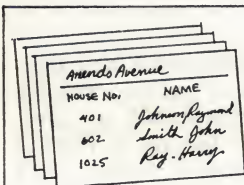 Amends Avenue
HOUSE NO. NAME
401 Johnson, Raymond
602 Smith John
1025 Ray - Harry